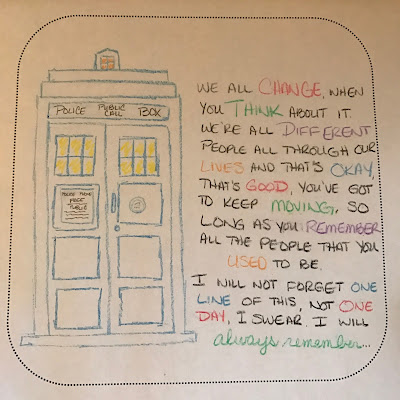 POLICE PUBLIC CALL BOX
WE ALL CHANGE, WHEN
YOU THINK ABOUT IT.
WE'RE ALL DIFFERENT
PEOPLE ALL THROUGH OUR
LIVES AND THAT'S OKAY,
THAT'S GOOD, YOU'VE GOT
TO KEEP MOVING, SO
LONG AS YOU REMEMBER
ALL THE PEOPLE THAT YOU
USED TO BE.
I WILL NOT FORGET ONE
LINE OF THIS, NOT ONE
DAY, I SWEAR. I WILL
always remember...